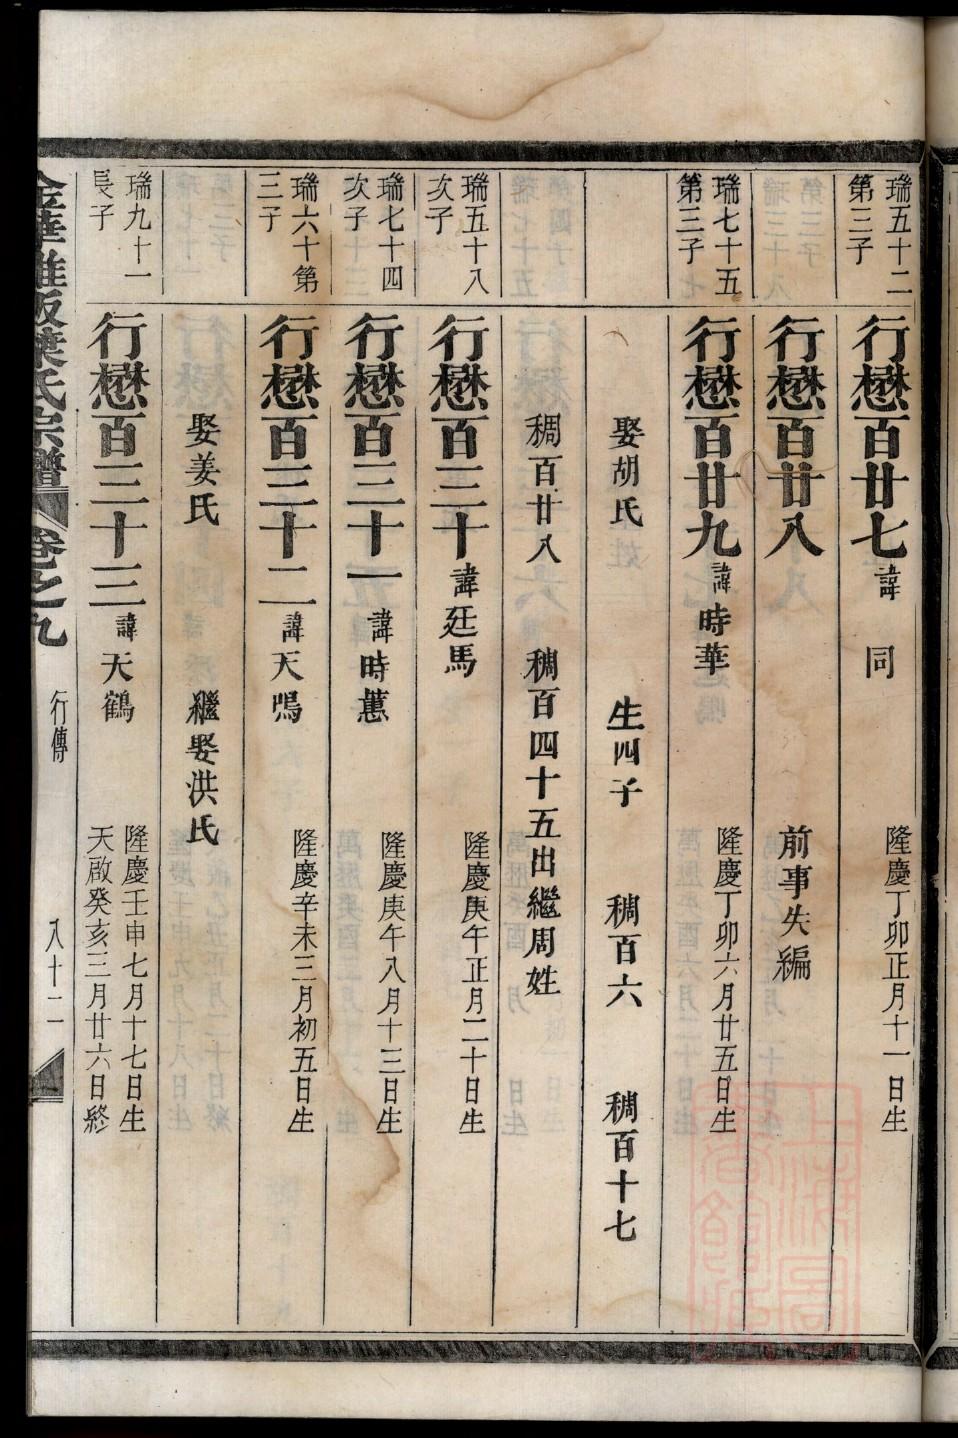 瑞五十二
第三子
行懋百廿七
諱同
隆慶丁卯正月十一日生
行懋百廿八
前事失編
瑞七十五
第三子
行懋百廿九
諱時華
隆慶丁卯六月廿五日生
娶胡氏 生四子 稠百六 稠百十七
稠百廿八 稠百四十五出繼周姓
瑞五十八
次子
行懋百三十
諱廷馬
隆慶庚午正月二十日生
瑞七十四
次子
行懋百三十一
諱時蕙
隆慶庚午八月十三日生
瑞六十第
三子
行懋百三十二
諱天鳴
隆慶辛未三月初五日生
娶姜氏 繼娶洪氏
瑞九十一
長子
行懋百三十三
諱天鶴
隆慶壬申七月十七日生
天啟癸亥三月廿六日終
葉氏宗譜 卷之九 行傳 八十二